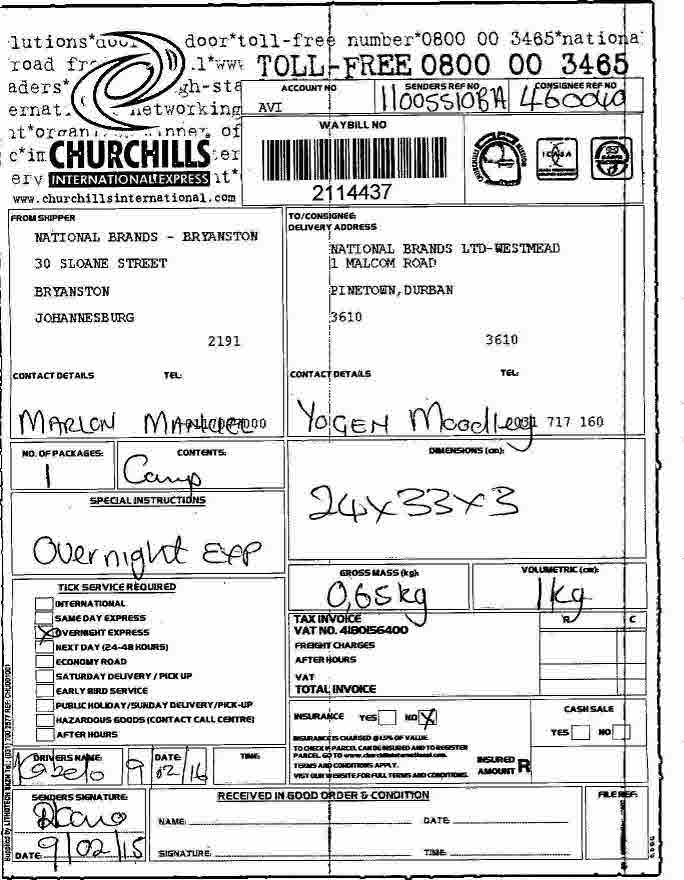 lutions* door*toll-free number*0800 00 3465*nationa
road fr .1*ww TOLL-FREE 0800 00 3465
aders* gh-sta ACCOUNT NO SENDERS REF NO CONSIGNEE REF NO
ernat. networking AVI 460040
nner, of WAYBILL NO
c*in CHURCHILLS er
ery INTERNATIONAL EXPRESS
2114437
www.churchillsinternational.com
FROM SHIPPER
NATIONAL BRANDS - BRYANSTON
30 SLOANE STREET
BRYANSTON
JOHANNESBURG
2191
CONTACT DETAILS TEL:
MARLON
TO/CONSIGNEE
DELIVERY ADDRESS
NATIONAL BRANDS LTD-WESTMEAD
1 MALCOM ROAD
PINETOWN, DURBAN
3610
3610
CONTACT DETAILS TEL:
YOGEN Moodley 717 160
NO. OF PACKAGES: CONTENTS:
1 Camp
SPECIAL INSTRUCTIONS
Overnight EXP
DIMENSIONS (cm):
24x33x3
GROSS MASS (kg): VOLUMETRIC (cm):
0,65kg 1kg
TICK SERVICE REQUIRED
INTERNATIONAL
SAME DAY EXPRESS
X OVERNIGHT EXPRESS
NEXT DAY (24-48 HOURS)
ECONOMY ROAD
SATURDAY DELIVERY / PICK UP
EARLY BIRD SERVICE
PUBLIC HOLIDAY/SUNDAY DELIVERY/PICK-UP
HAZARDOUS GOODS (CONTACT CALL CENTRE)
AFTER HOURS
TAX INVOICE R C
VAT NO. 4180156400
FREIGHT CHARGES
AFTER HOURS
VAT
TOTAL INVOICE
INSURANCE YES NO X
CASH SALE
YES NO
INSURANCE IS CHARGED @ 1.5% OF VALUE.
TO CHECK IF PARCEL CAN BE INSURED AND TO REGISTER
PARCEL GO TO www.churchillsinternational.com.
TERMS AND CONDITIONS APPLY.
VISIT OUR WEBSITE FOR FULL TERMS AND CONDITIONS.
INSURED
AMOUNT R
DRIVERS NAME: DATE: TIME:
Kabelo 9/02/16
SENDERS SIGNATURE:
DATE: 9/02/15
RECEIVED IN GOOD ORDER & CONDITION
NAME: DATE:
SIGNATURE: TIME:
FILE REF: